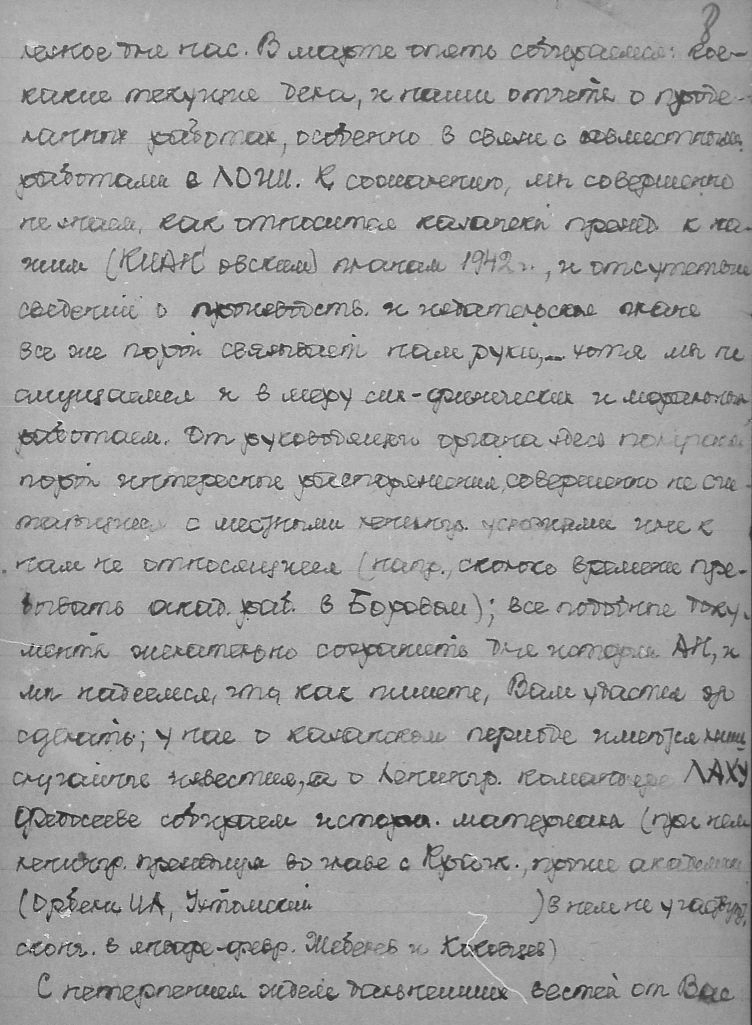 лезное для нас. В марте опять собираемся: кое-
какие текущие дела, и наши отчеты о проде-
ланных работах, особенно в связи с совместными
работами с ЛОИИ. К сожалению, мы совершенно
не знаем, как относится казанский презид. к на-
шим (КИАН'овским) планам 1942 г., и отсутствие
сведений о производств. и издательском плане
все же порой связывает нам руки, хотя мы не
смущаемся и в меру сил физических и моральных
работаем. От руководящего органа здесь получаем
порой интересные распоряжения, совершенно не счи-
тающиеся с местными ленингр. условиями или к
нам не относящиеся (напр., сколько времени пре-
бывать акад. раб. в Боровом); все подобные доку-
менты желательно сохранить для истории АН, и
мы надеемся, что, как пишете, Вам удастся это
сделать; у нас о казанском периоде имеются лишь
случайные известия, а о Ленингр. командире ЛАХУ
Федосееве собираем истори. материалы (при нем
ленингр. президиум во главе с Крачк., прочие академики
(Орбели ИА, Ухтомский ) в нем не участвуют,
сконч. в январе-февр. Жебелев и Коковцов)
С нетерпением ждем дальнейших вестей от Вас